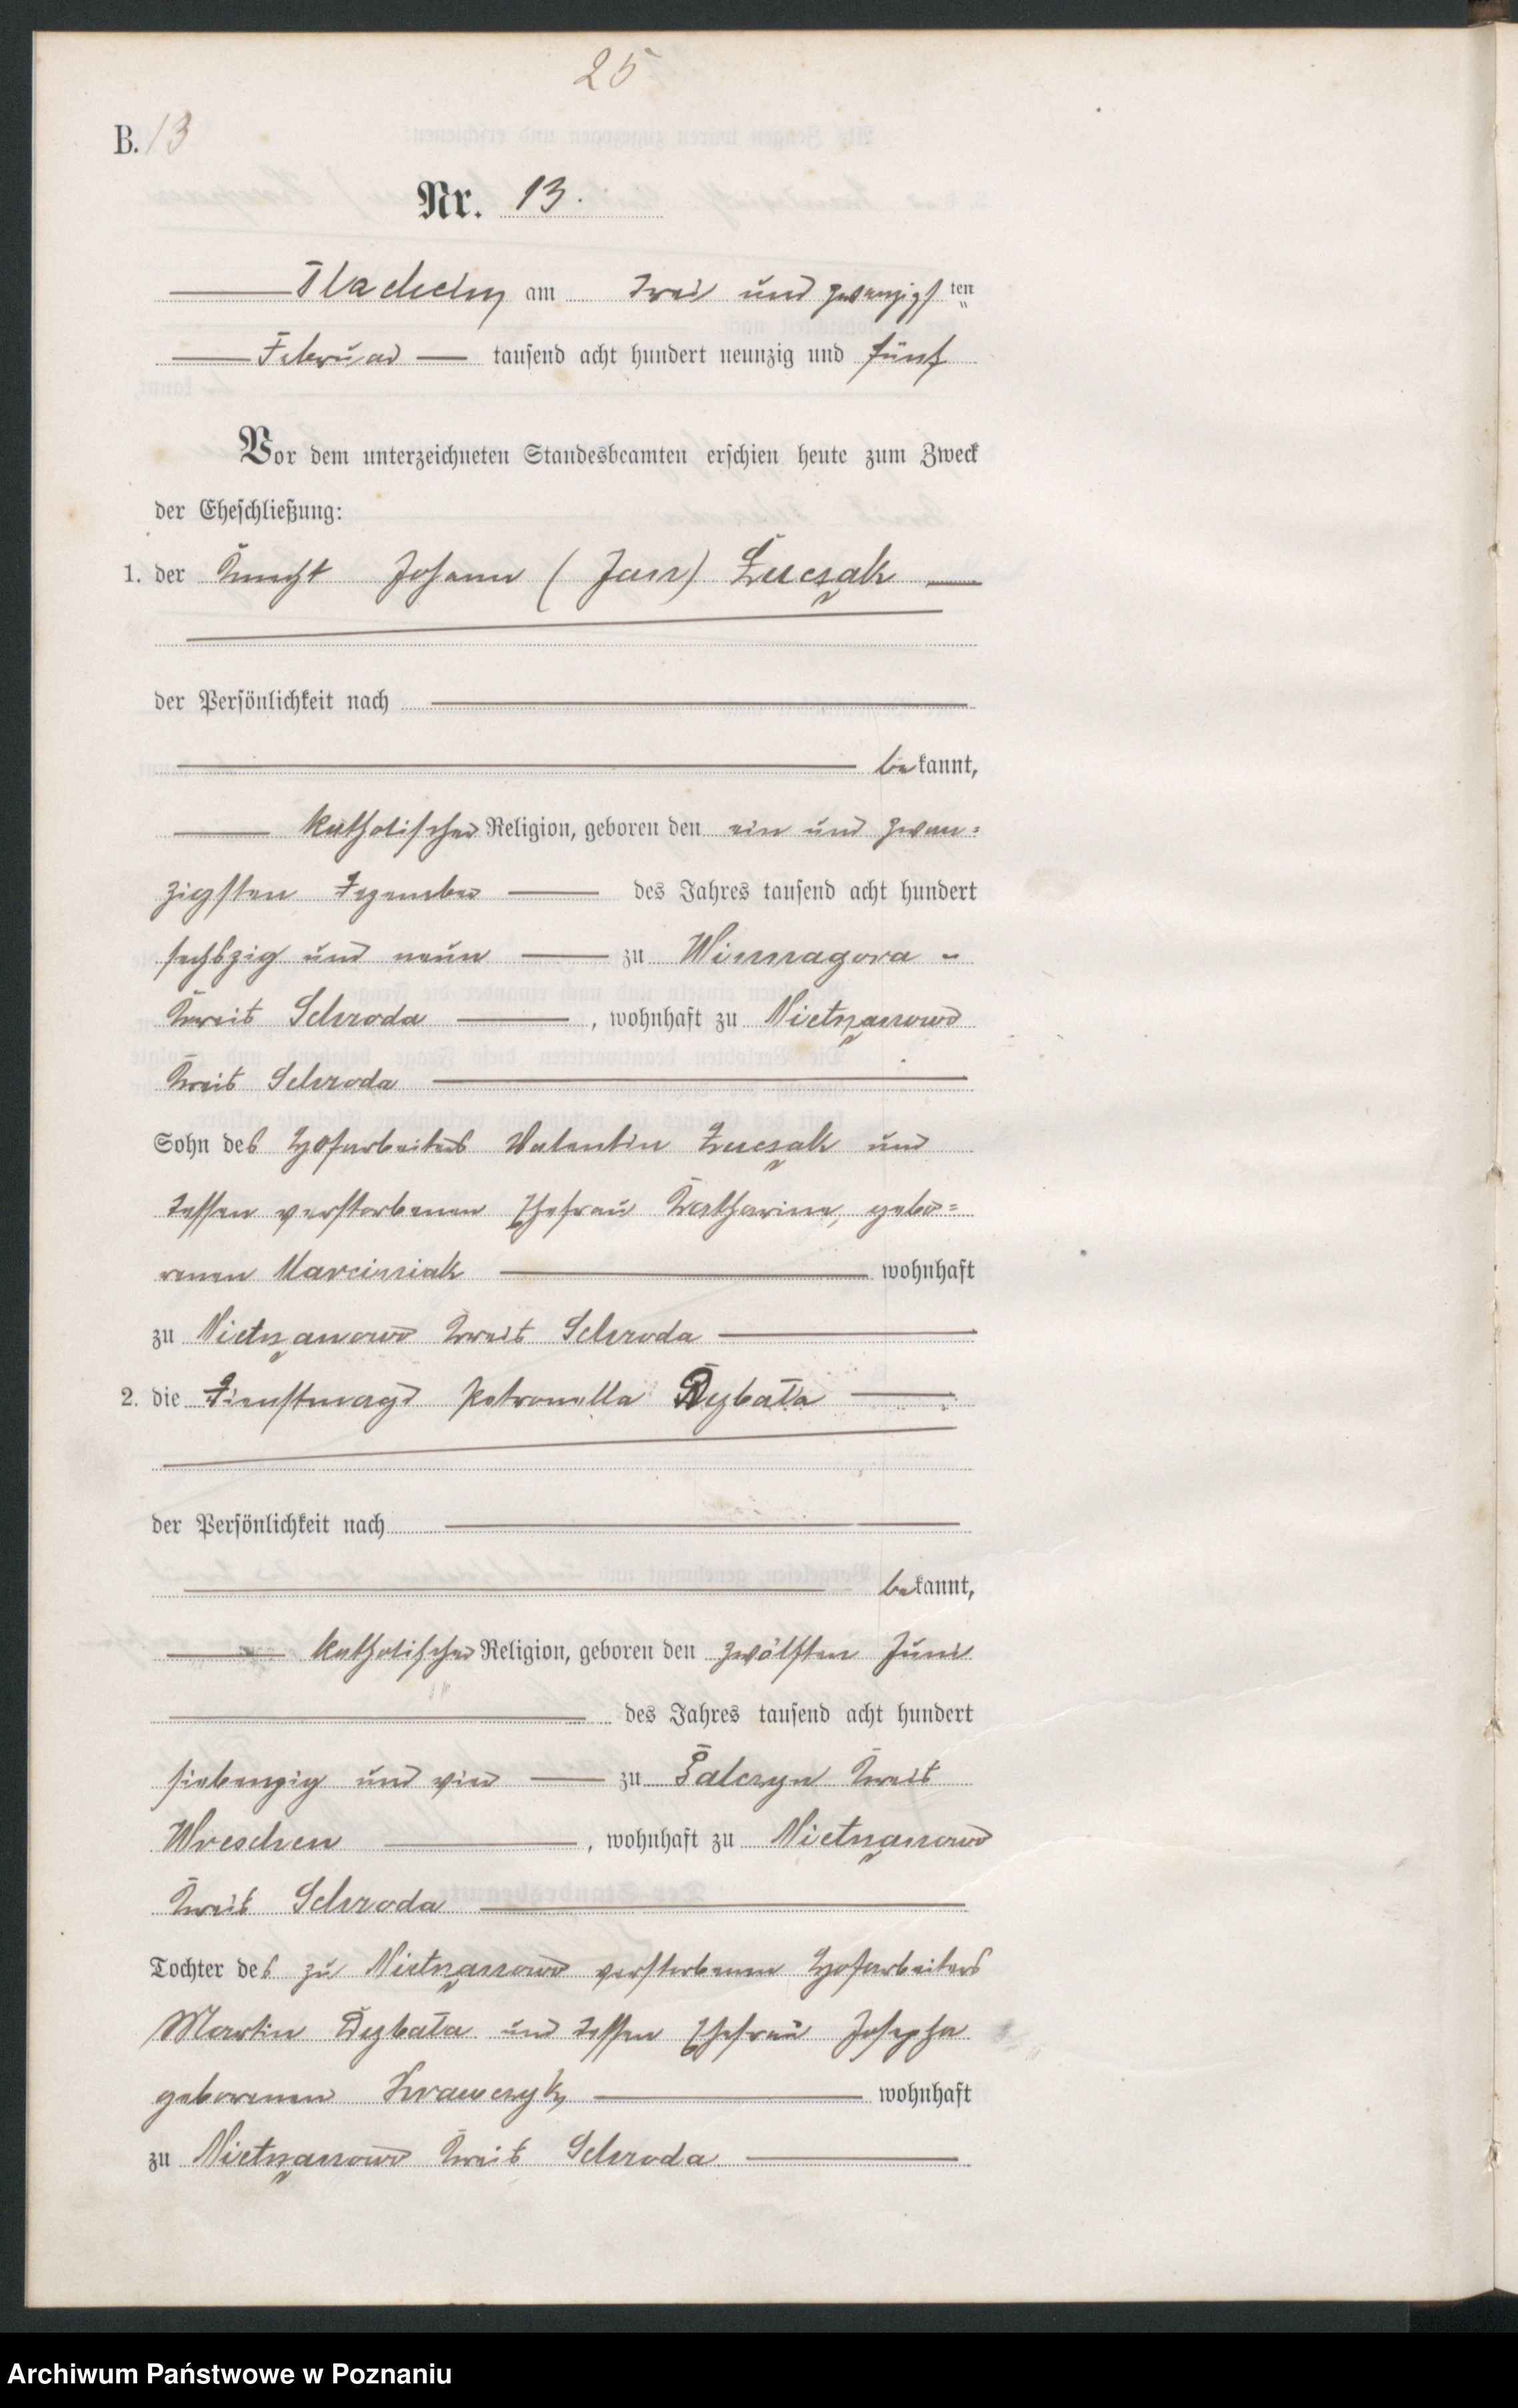 25
B. 13
Nr. 13.
am drei und zwanzigsten
Februar tausend acht hundert neunzig und fünf
Vor dem unterzeichneten Standesbeamten erschien heute zum Zweck
der Eheschließung:
1. der Knecht Johann (Jan)
der Persönlichkeit nach
bekannt,
katholischer Religion, geboren den ein und zwan=
zigsten Dezember des Jahres tausend acht hundert
sechszig und neun zu Winnagora
Kreis Schroda, wohnhaft zu Nietrzanowo
Kreis Schroda
Sohn des Hofarbeiters Valentin und
dessen verstorbenen Ehefrau Katharina, gebo=
renen Marciniak wohnhaft
zu Nietrzanowo Kreis Schroda
2. die Dienstmagd Petronella Dyzbała
der Persönlichkeit nach
bekannt,
katholischer Religion, geboren den zwölften Juni
des Jahres tausend acht hundert
siebenzig und vier zu Kreis
Wreschen, wohnhaft zu Nietrzanowo
Kreis Schroda
Tochter des zu Nietrzanowo verstorbenen Hofarbeiters
Martin Dyzbała und dessen Ehefrau Josepha
geborenen Krawczyk, wohnhaft
zu Nietrzanowo Kreis Schroda
Archiwum Państwowe w Poznaniu